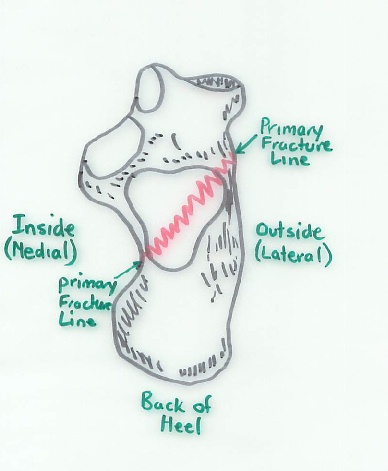 Primary
Fracture
Line
Inside
(Medial)
Outside
(Lateral)
primary
Fracture
Line
Back of
Heel